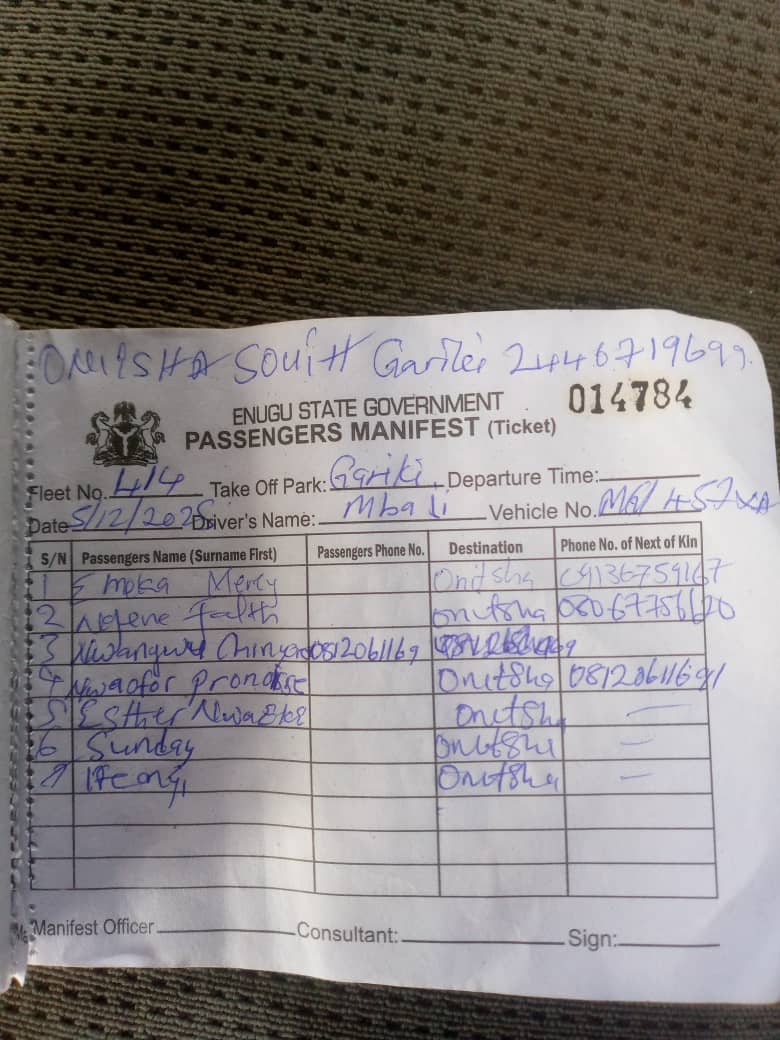 ONITSHA SOUTH Gariki 2446719699
ENUGU STATE GOVERNMENT 014784
PASSENGERS MANIFEST (Ticket)
Fleet No. 414 Take Off Park: Gariki Departure Time:
Date 5/12/2025 Driver's Name: Mbali Vehicle No.
S/N Passengers Name (Surname First) Passengers Phone No. Destination Phone No. of Next of Kin
1 Emeka Mercy Onitsha 09136759167
2 Faith Onitsha 08067756620
3 0812061169
4 Nwaofor Onitsha 08120611691
5 Esther Onitsha —
6 Sunday Onitsha —
7 Ifeanyi Onitsha —
Manifest Officer Consultant: Sign: